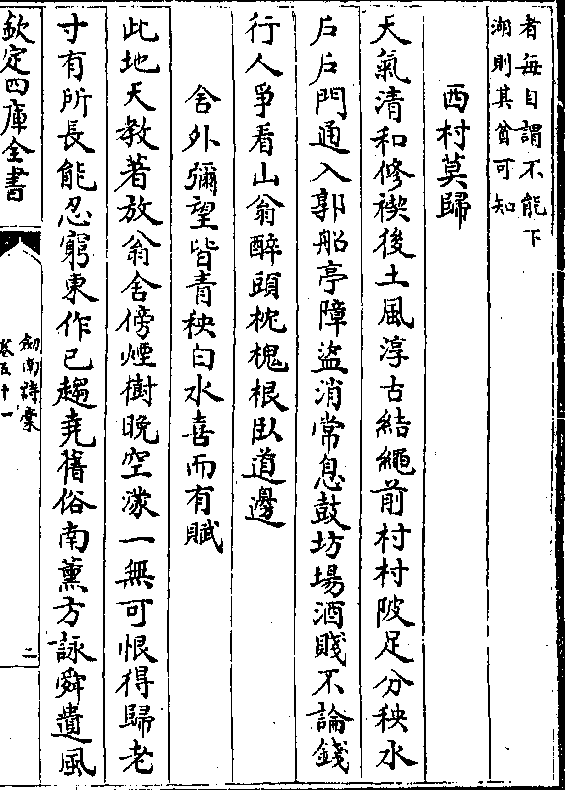 者每自謂不能下
湖則其貧可知
西村莫歸
天氣清和修禊後土風淳古結繩前村村陂足分秧水
戶戶門通入郭船亭障盜消常息鼓坊場酒賤不論錢
行人爭看山翁醉頭枕槐根臥道邊
舍外彌望皆青秧白水喜而有賦
此地天教著放翁舍傍煙樹晚空濛一無可恨得歸老
寸有所長能忍窮東作已趨堯舊俗南薰方詠舜遺風
欽定四庫全書
劍南詩稾
卷五十一
二